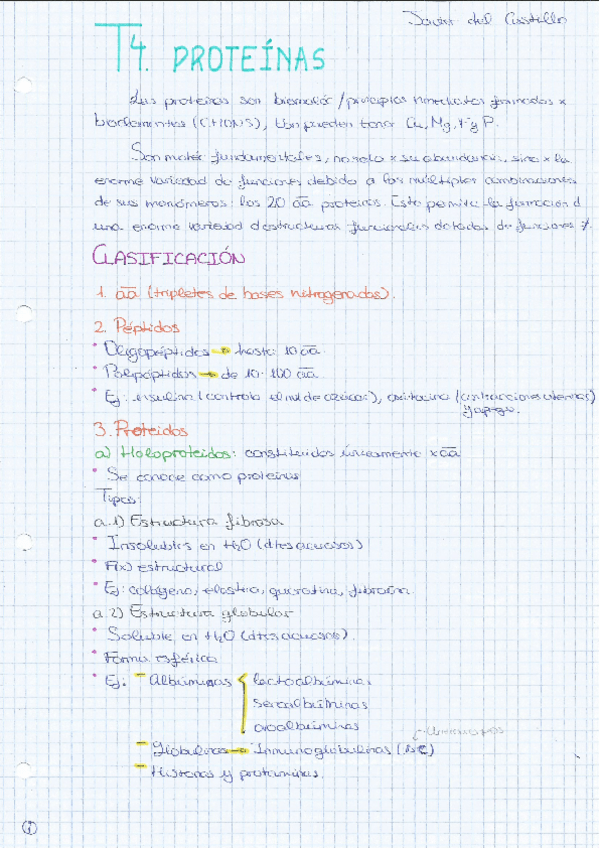 Javier del Castillo
T4. PROTEÍNAS
Las proteínas son biomoléc / principios inmediatos formados x
bioelementos (CHONS), tbn pueden tener Cu, Mg, F y P.
Son moléc fundamentales, no solo x su abundancia, sino x la
enorme variedad de funciones debido a las múltiples combinaciones
de sus monómeros: los 20 aa proteicos. Esto permite la formación d
una enorme variedad d estructuras funcionales dotadas de funciones ≠.
CLASIFICACIÓN
1. aa (tripletes de bases nitrogenadas).
2. Péptidos
· Oligopéptidos → hasta 10 aa.
· Polipéptidos → de 10-100 aa
· Ej: insulina (controla el niv de azúcar), oxitocina (contracciones uterinas)
y apego.
3. Proteidos
a) Holoproteidos: constituidos únicamente x aa
· Se conoce como proteínas
Tipos:
a.1) Estructura fibrosa
· Insolubles en H2O (dtes acuosos)
· F(x) estructural
· Ej: colágeno, elastina, queratina, fibroína.
a.2) Estructura globular
· Soluble en H2O (dtes acuosos).
· Forma esférica
· Ej: - Albúminas { lactoalbúminas
seroalbúminas
ovoalbúminas
- Globulinas → Inmunoglobulinas
- Histonas y protaminas.
1